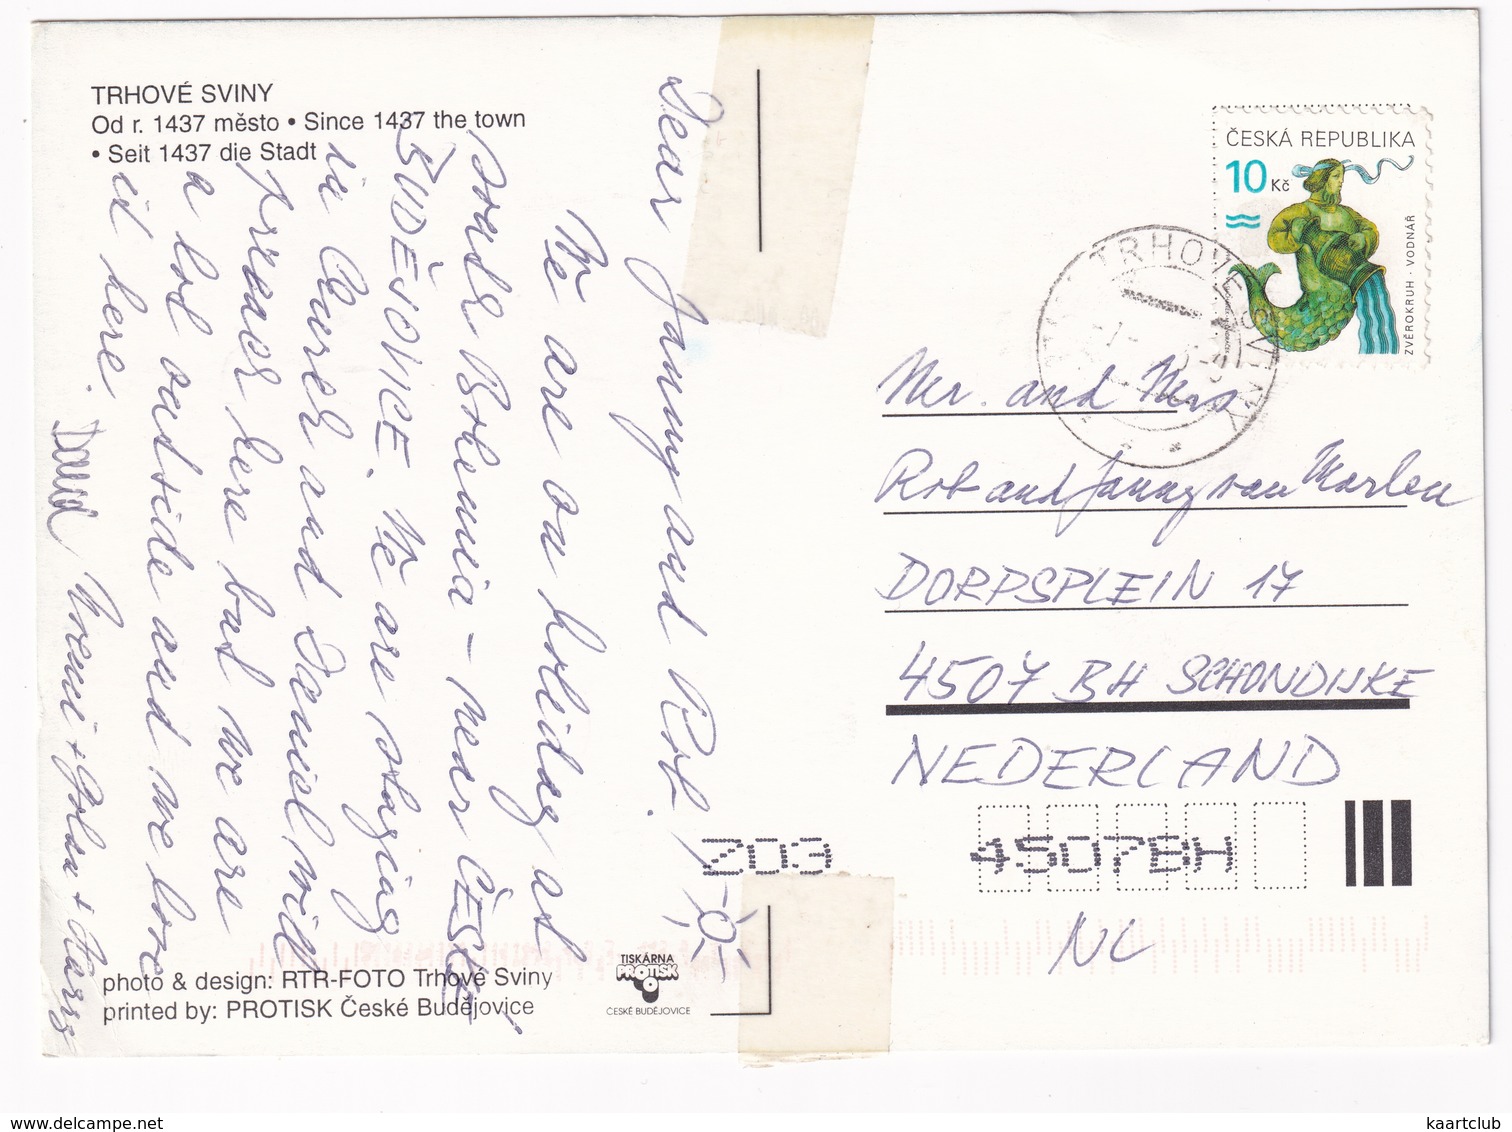 TRHOVÉ SVINY
Od r. 1437 město • Since 1437 the town
• Seit 1437 die Stadt
Dear Janny and Rob!
We are on holiday at
South Bohemia - near ČESKÉ
BUDĚJOVICE. We are staying
in and Daniel will
here but we are
a lot outside and we love
it here.
David + + Harry
ČESKÁ REPUBLIKA
10 Kč
ZVĚROKRUH · VODNÁŘ
TRHOVÉ SVINY
Mr. and Mrs
Rob and Janny van Marlen
DORPSPLEIN 17
4507 BH SCHONDIJKE
NEDERLAND
203
4507BH
NL
photo & design: RTR-FOTO Trhové Sviny
printed by: PROTISK České Budějovice
TISKÁRNA
PROTISK
ČESKÉ BUDĚJOVICE
delcampe.net
kaartclub